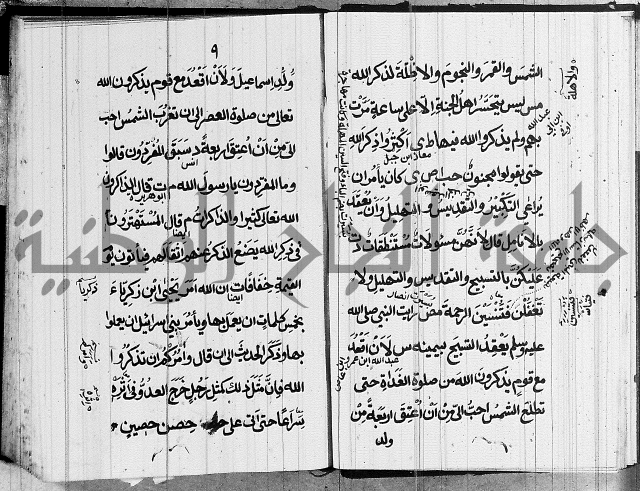 الشمس والقمر والنجوم والاظلة لذكر الله
مس ليس يتحسر اهل الجنة الا على ساعة مرت
بهم ولم يذكروا الله فيها ط ى اكثروا ذكر الله
حتى يقولوا مجنون حب ص ى كان يأمر ان
يراعى التكبير والتقديس والتهليل وان يعقد
بالانامل قال لانهن مسؤلات مستنطقات د ت
عليكن بالتسبيح والتقديس والتهليل لا
تغفلن فتنسين الرحمة مص رايت النبي صلى الله
عليه وسلم يعقد التسبيح بيمينه س لان اقعد
مع قوم يذكرون الله من صلوة الغداة حتى
تطلع الشمس احب الى من ان اعتق اربعة من
ولد
والاهلة
معاذ ابن جبل
٩
ولد اسماعيل ولان اقعد مع قوم يذكرون الله
تعالى من صلوة العصر الى ان تغرب الشمس احب
الى من ان اعتق اربعة د سبق المفردون قالوا
انس
وما المفردون يا رسول الله م ت قال الذاكرون
ابو هريرة
الله تعالى كثيرا والذاكرات م قال المستهترون
ايضا
في ذكر الله يضع الذكر عنهم اثقالهم فياتون يوم
القيمة خفافا ت ان الله امر يحيى ابن زكرياء
ايضا
بخمس كلمات ان يعمل بها ويأمر بنى اسرائيل ان يعملوا
بها وذكر الحديث الى ان قال وامركم ان تذكروا
الله فان مثل ذلك كمثل رجل خرج العدو فى اثره
سراعا حتى اتى على حصن حصين
جامعة النجاح الوطنية